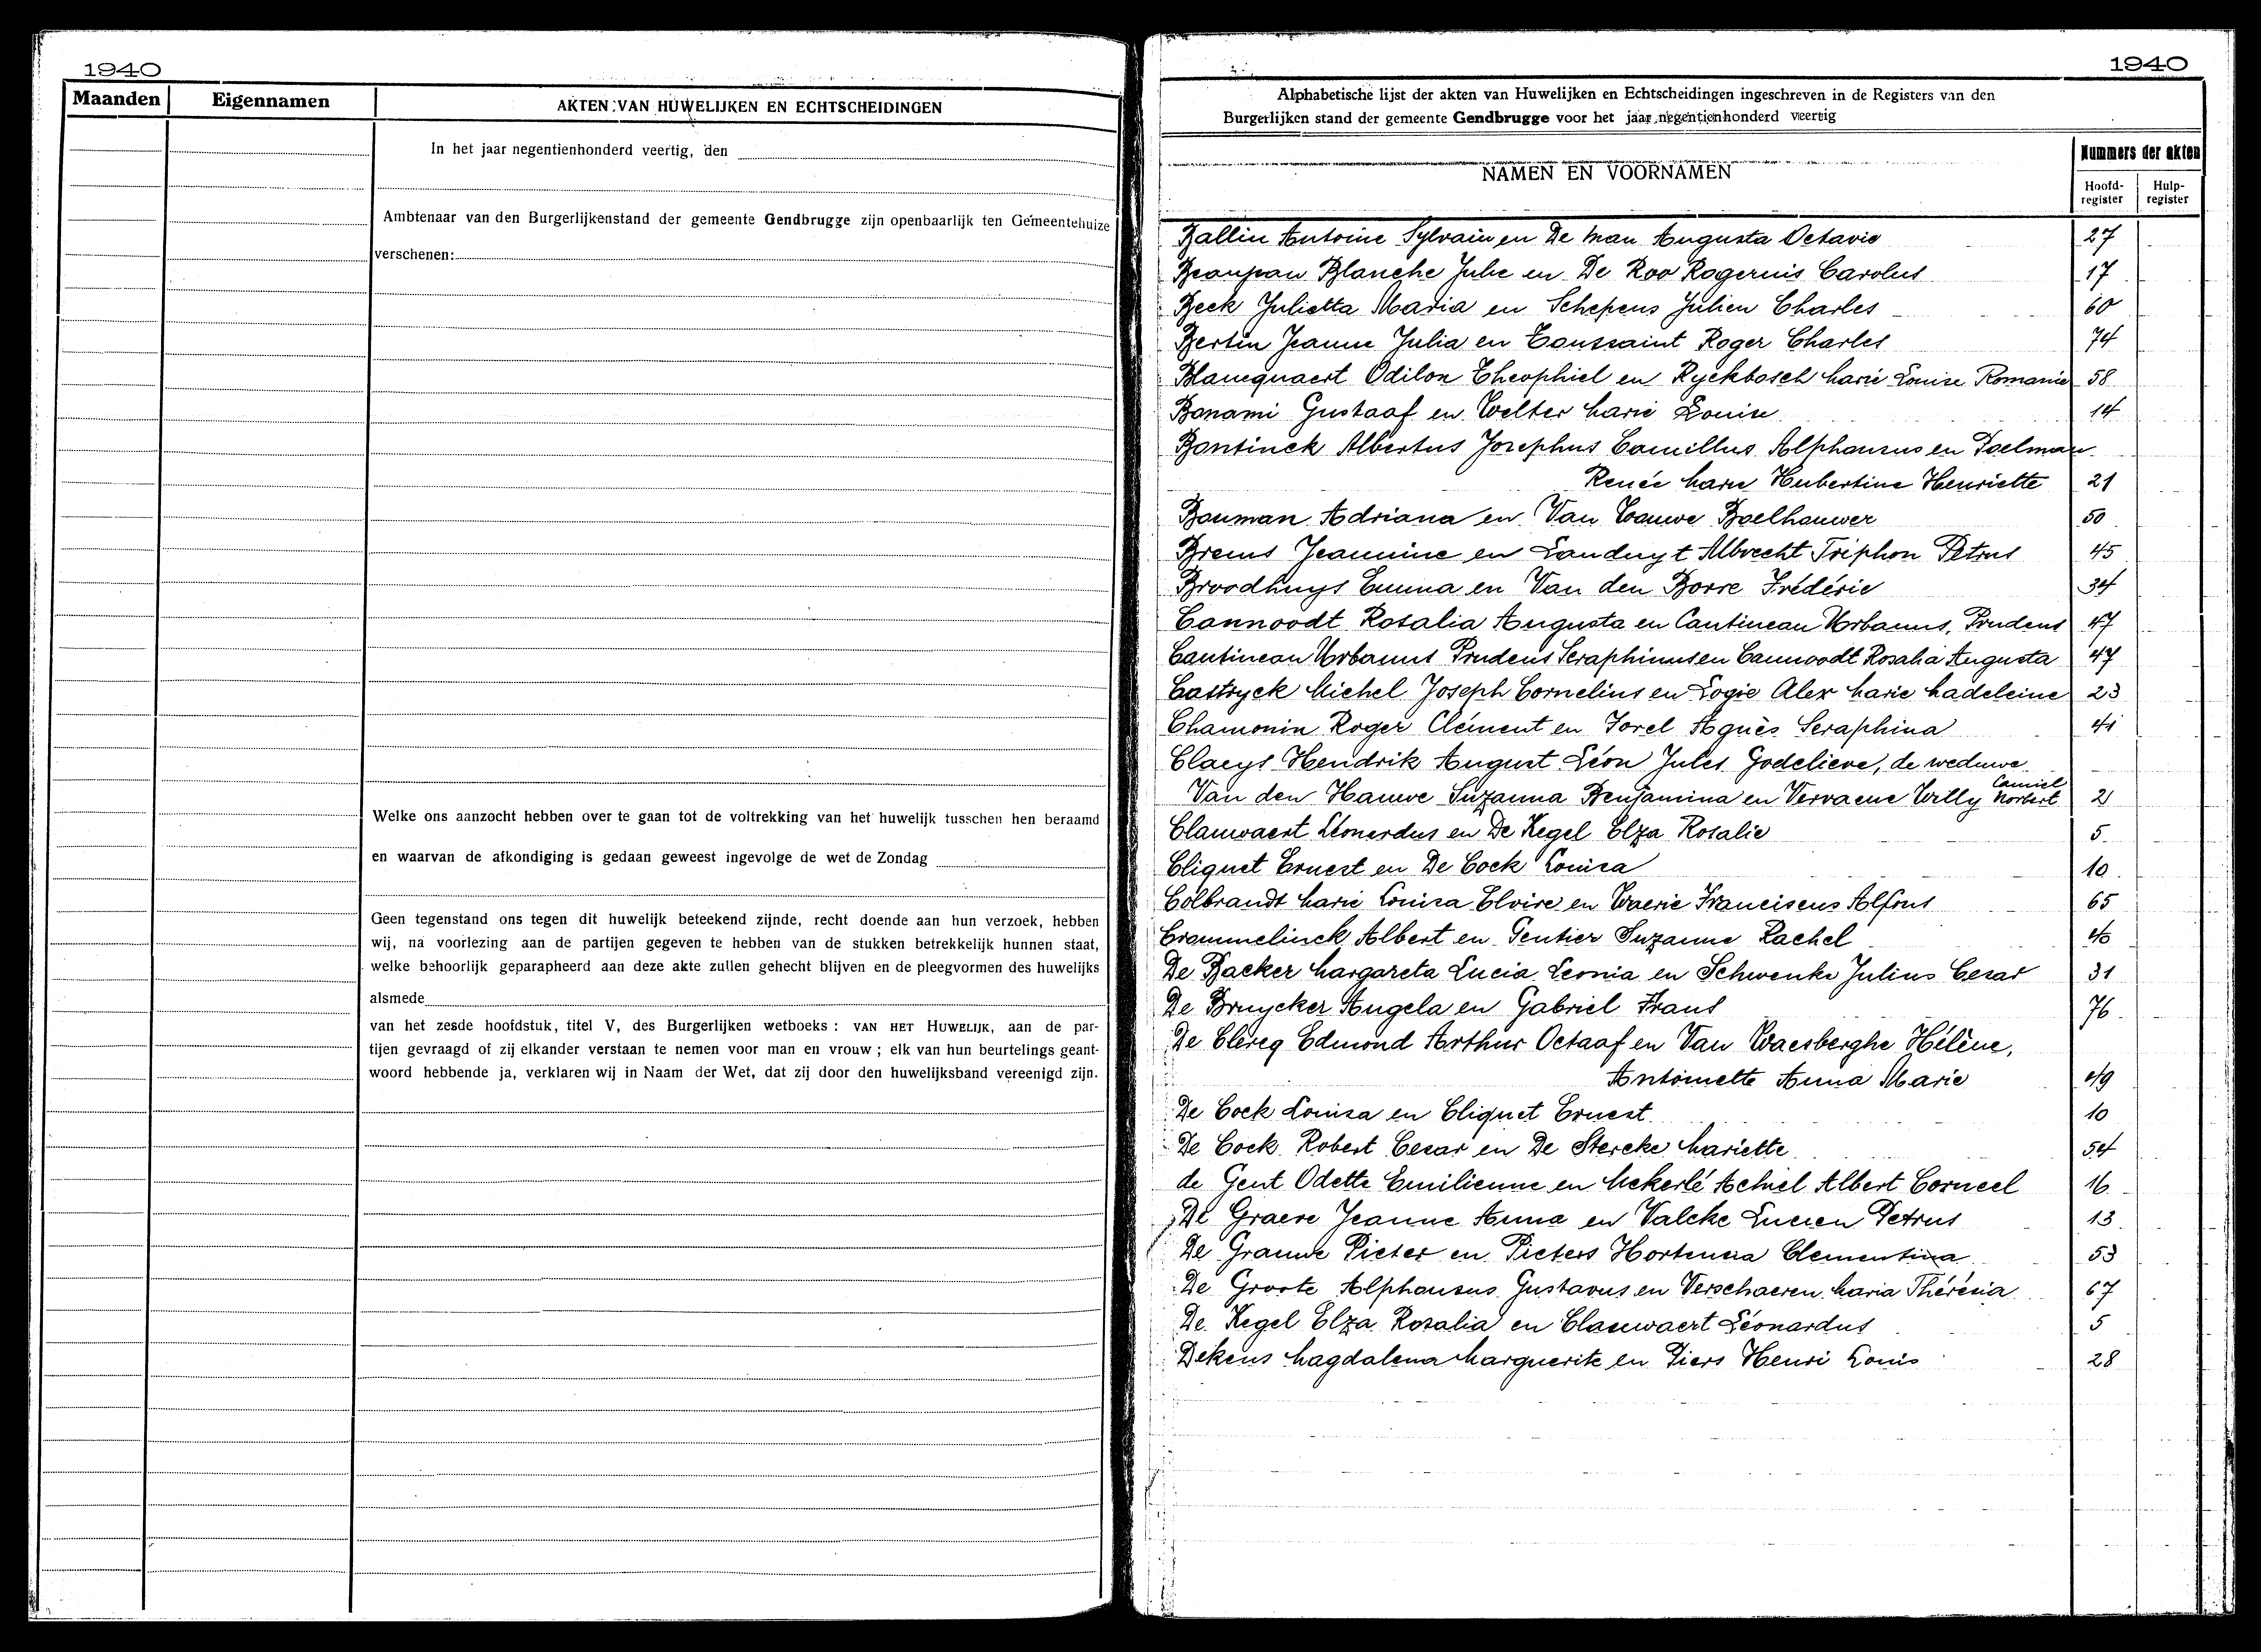 1940
Maanden
Eigennamen
AKTEN VAN HUWELIJKEN EN ECHTSCHEIDINGEN
In het jaar negentienhonderd veertig, den
Ambtenaar van den Burgerlijkenstand der gemeente Gendbrugge zijn openbaarlijk ten Gemeentehuize
verschenen:
Welke ons aanzocht hebben over te gaan tot de voltrekking van het huwelijk tusschen hen beraamd
en waarvan de afkondiging is gedaan geweest ingevolge de wet de Zondag
Geen tegenstand ons tegen dit huwelijk beteekend zijnde, recht doende aan hun verzoek, hebben
wij, na voorlezing aan de partijen gegeven te hebben van de stukken betrekkelijk hunnen staat,
welke behoorlijk geparapheerd aan deze akte zullen gehecht blijven en de pleegvormen des huwelijks
alsmede
van het zesde hoofdstuk, titel V, des Burgerlijken wetboeks : VAN HET HUWELIJK, aan de par-
tijen gevraagd of zij elkander verstaan te nemen voor man en vrouw ; elk van hun beurtelings geant-
woord hebbende ja, verklaren wij in Naam der Wet, dat zij door den huwelijksband vereenigd zijn.
1940
Alphabetische lijst der akten van Huwelijken en Echtscheidingen ingeschreven in de Registers van den
Burgerlijken stand der gemeente Gendbrugge voor het jaar negentienhonderd veertig
NAMEN EN VOORNAMEN
Nummers der akten
Hoofd-register
Hulp-register
Ballin Antoine Sylvain en De Man Augusta Octavie 27
Beaupan Blanche Julie en De Roo Rogerius Carolus 17
Beck Julietta Maria en Schepens Julien Charles 60
Bertin Jeanne Julia en Toussaint Roger Charles 74
Blancquaert Odilon Theophiel en Ryckbosch Marie Louise Romanie 58
Bonami Gustaaf en Welter Marie Louise 14
Bontinck Albertus Josephus Camillus Alphonsus en Poelman
Renée Marie Hubertine Henriette 21
Bouman Adriana en Van Wauwe Boelhauwer 50
Brems Jeannine en Landuyt Albrecht Triphon Petrus 45
Broodhuys Emma en Van den Borre Frédéric 34
Cannoodt Rosalia Augusta en Cantineau Urbanus, Prudens 47
Cantineau Urbanus Prudens Seraphinus en Cannoodt Rosalia Augusta 47
Castryck Michel Joseph Cornelius en Logie Alex Marie Madeleine 23
Chamonin Roger Clément en Sorel Agnès Seraphina 41
Claeys Hendrik August Léon Jules Godelieve, de weduwe
Camiel
Van den Hauwe Suzanna Benjamina en Vervaene Willy Norbert 2
Clauwaert Léonardus en De Kegel Elza Rosalie 5
Cliquet Ernest en De Cock Louisa 10
Colbrandt Marie Louisa Elvire en Waerie Franciscus Alfons 65
Crommelinck Albert en Gentier Suzanne Rachel 40
De Backer Margareta Lucia Leonia en Schwenke Julius Cesar 31
De Bruycker Angela en Gabriel Frans 76
De Clercq Edmond Arthur Octaaf en Van Waesberghe Hélène,
Antoinette Anna Marie 49
De Cock Louisa en Cliquet Ernest 10
De Cock Robert Cesar en De Stercke Mariette 54
de Gent Odette Emilienne en Mekerlé Achiel Albert Corneel 16
De Graeve Jeanne Anna en Valcke Lucien Petrus 13
De Grauwe Pieter en Pieters Hortensia Clementina 53
De Groote Alphonsus Gustavus en Verschaeren Maria Thérèsia 67
De Kegel Elza Rosalia en Clauwaert Léonardus 5
Dekens Magdalena Marguerite en Piers Henri Louis 28